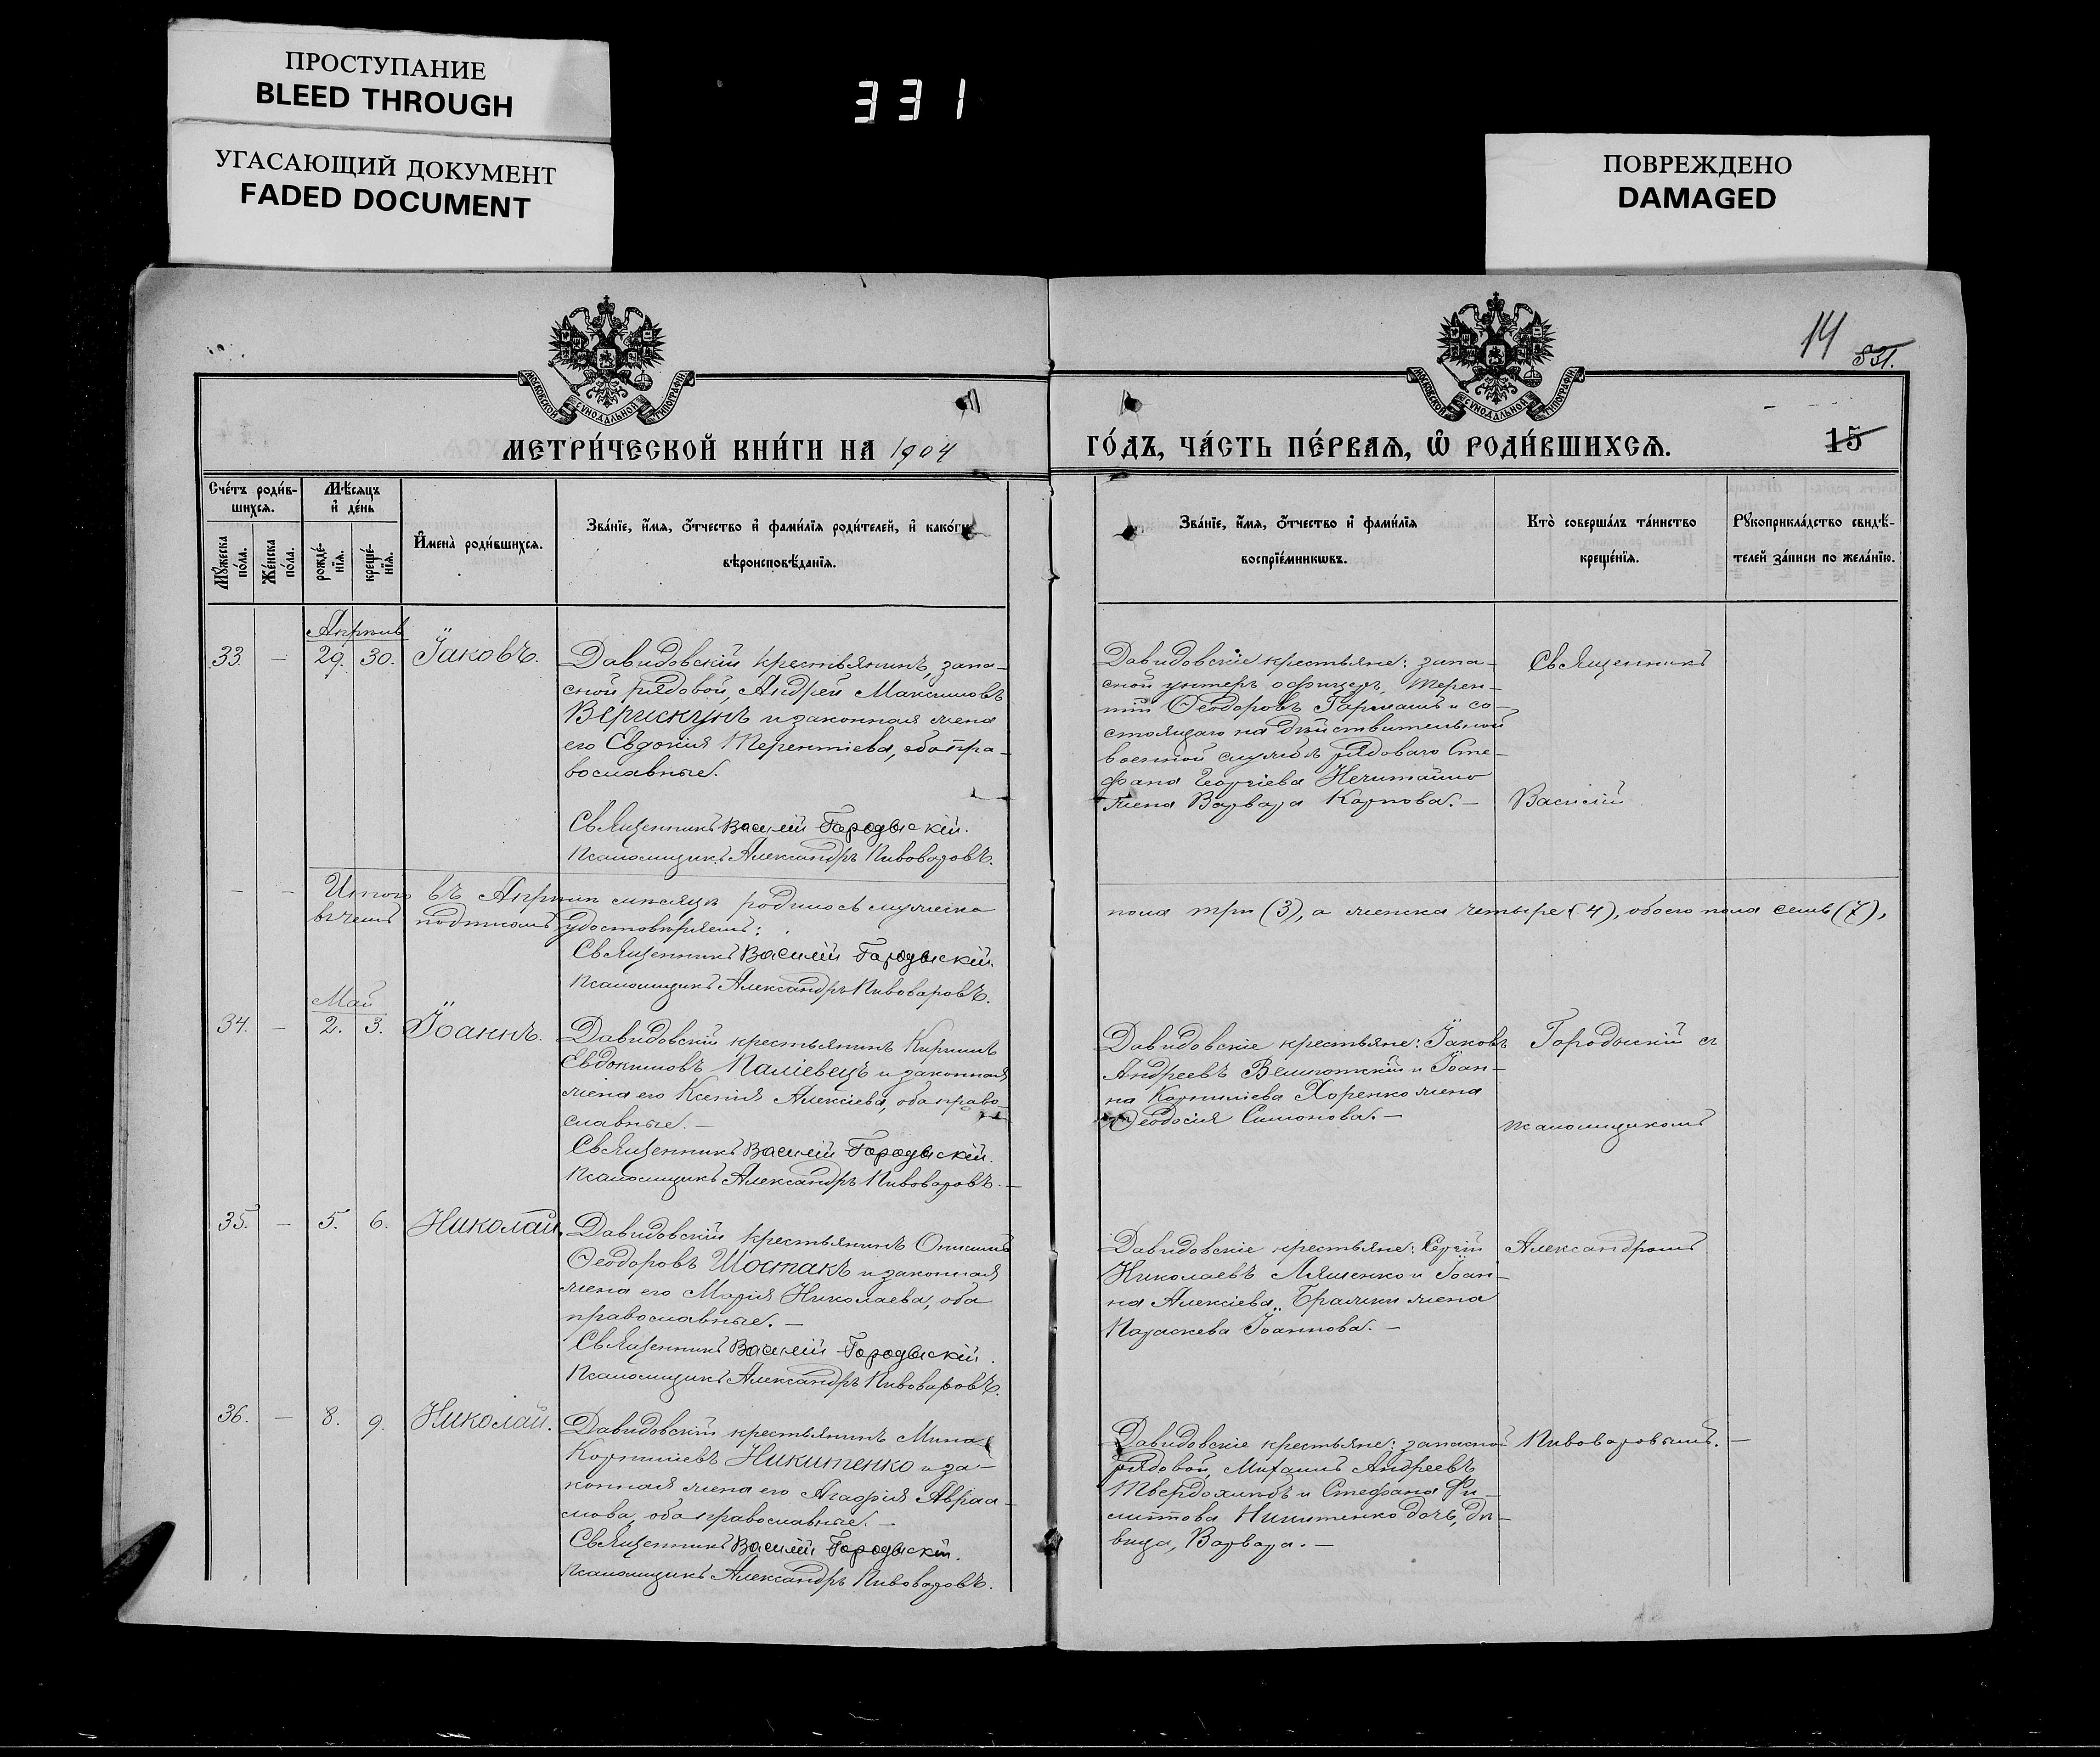 ПРОСТУПАНИЕ
BLEED THROUGH
УГАСАЮЩИЙ ДОКУМЕНТ
FADED DOCUMENT
331
ПОВРЕЖДЕНО
DAMAGED
14
831.
15
МОСКОВСКОЙ СѴНОДАЛЬНОЙ ТИПОГРАФІИ
МОСКОВСКОЙ СѴНОДАЛЬНОЙ ТИПОГРАФІИ
МЕТРИ́ЧЕСКОЙ КНИ́ГИ НА 1904
ГО́ДЪ, ЧА́СТЬ ПЕ́РВАѦ, Ѽ РОДИ́ВШИХСѦ.
Сче́тъ роди́в-
шихсѧ.
Мꙋ́жеска по́ла.
Же́нска по́ла.
Мѣ́сѧцъ
и҆ де́нь
рожде́-
нїѧ.
креще́-
нїѧ.
И҆мена̀ роди́вшихсѧ.
Зва́нїе, и҆́мѧ, ѻ҆́тчество и҆ фами́лїѧ роди́телей, и҆ како́гѡ
вѣроисповѣ́данїѧ.
Зва́нїе, и҆́мѧ, ѻ҆́тчество и҆ фами́лїѧ
воспрїе́мникѡвъ.
Кто̀ соверша́лъ та́инство
креще́нїѧ.
Рꙋкоприкла́дство свидѣ́-
телей за́писи по жела́нїю.
Апрѣль
33. — 29. 30. Іаковъ.
Давидовскій крестьянинъ, запа-
сной рядовой, Андрей Максимовъ
Верискунъ и законная жена
его Евдокія Терентіева, оба пра-
вославные.
Священникъ Василій Городыскій.
Псаломщикъ Александръ Пивоваровъ.
Давидовскіе крестьяне: запа-
сной унтеръ офицеръ, Терен-
тій Ѳеодоровъ Гармашъ и со-
стоящаго на дѣйствительной
военной службѣ рядоваго Сте-
фана Георгіева Нечитайло
жена Варвара Карпова. —
Священникъ
Василій
— — Итого въ Апрѣлѣ мѣсяцѣ родилось мужеска
пола три (3), а женска четыре (4), обоего пола семь (7),
въ чемъ подписомъ удостовѣряемъ:
Священникъ Василій Городыскій.
Псаломщикъ Александръ Пивоваровъ.
Май
34. — 2. 3. Іоаннъ.
Давидовскій крестьянинъ Кириллъ
Евдокимовъ Паліевецъ и законная
жена его Ксенія Алексіева, оба право
славные. —
Священникъ Василій Городыскій.
Псаломщикъ Александръ Пивоваровъ. —
Давидовскіе крестьяне: Іаковъ
Андреевъ и Іоан-
на Корниліева Хоренко жена
Ѳеодосія Симонова. —
Городыскій съ
псаломщикомъ
35. — 5. 6. Николай.
Давидовскій крестьянинъ Онисимъ
Ѳеодоровъ Шостакъ и законная
жена его Марія Николаева, оба
православные. —
Священникъ Василій Городыскій.
Псаломщикъ Александръ Пивоваровъ.
Давидовскіе крестьяне: Сергій
Николаевъ Ляшенко и Іоан-
на Алексіева жена
Параскева Іоаннова. —
Александромъ
36. — 8. 9. Николай.
Давидовскій крестьянинъ Мина
Корниліевъ Никитенко и за-
конная жена его Агафія Авраа-
мова, оба православные. —
Священникъ Василій Городыскій.
Псаломщикъ Александръ Пивоваровъ.
Давидовскіе крестьяне: запасной
рядовой, Михаилъ Андреевъ
Твердохлѣбъ и Стефана Фи-
липпова Никитенко дочь, дѣ-
вица, Варвара. —
Пивоваровымъ. —